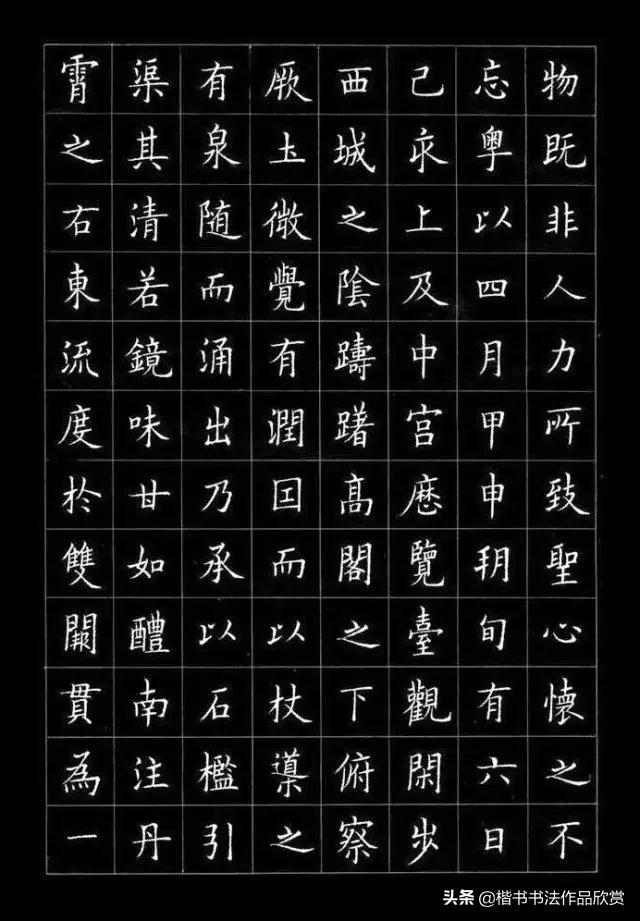 物既非人力所致聖心懷之不
忘粵以四月甲申朔旬有六日
己亥上及中宫歷覽臺觀閑步
西城之陰躊躇高閣之下俯察
厥土微覺有潤因而以杖導之
有泉随而涌出乃承以石檻引
渠其清若鏡味甘如醴南注丹
霄之右東流度於雙闕貫為一
头条 @楷书书法作品欣赏